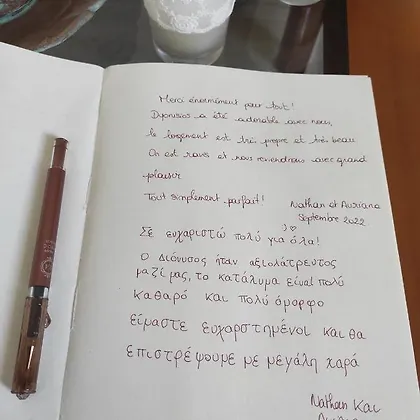 Merci énormément pour tout !
Dyonisos a été adorable avec nous,
le logement est très propre et très beau
On est ravis et nous reviendrons avec grand
plaisir
Tout simplement parfait!
Nathan et Auriane
Septembre 2022
Σε ευχαριστώ πολύ για όλα!
Ο Διόνυσος ήταν αξιολάτρευτος
μαζί μας, το κατάλυμα είναι πολύ
καθαρό και πολύ όμορφο
είμαστε ευχαρστημένοι και θα
επιστρέψουμε με μεγάλη χαρά
Nathan Και